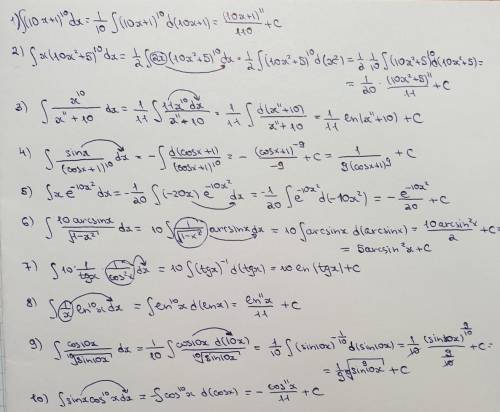 1) ∫(10x+1)^10 dx = 1/10 ∫(10x+1)^10 d(10x+1) = (10x+1)^11/110 + C
2) ∫x(10x²+5)^10 dx = 1/2 ∫2x(10x²+5)^10 dx = 1/2 ∫(10x²+5)^10 d(x²) = 1/2 · 1/10 ∫(10x²+5)^10 d(10x²+5) =
= 1/20 · (10x²+5)^11/11 + C
3) ∫ x^10/(x^11+10) dx = 1/11 ∫ 11x^10 dx/(x^11+10) = 1/11 ∫ d(x^11+10)/(x^11+10) = 1/11 ln(x^11+10) + C
4) ∫ sinx/(cosx+1)^10 dx = -∫ d(cosx+1)/(cosx+1)^10 = - (cosx+1)^-9/-9 + C = 1/9(cosx+1)^9 + C
5) ∫x e^-10x² dx = -1/20 ∫(-20x) e^-10x² dx = -1/20 ∫e^-10x² d(-10x²) = - e^-10x²/20 + C
6) ∫ 10arcsinx/√(1-x²) dx = 10 ∫ 1/√(1-x²) arcsinx dx = 10 ∫arcsinx d(arcsinx) = 10arcsin²x/2 + C =
= 5arcsin²x + C
7) ∫10 · 1/tgx · 1/cos²x dx = 10 ∫(tgx)^-1 d(tgx) = 10 ln(tgx) + C
8) ∫ 1/x ln^10 x dx = ∫ln^10 x d(lnx) = ln^11 x/11 + C
9) ∫ cos10x/¹⁰√sin10x dx = 1/10 ∫ cos10x d(10x)/¹⁰√sin10x = 1/10 ∫(sin10x)^-1/10 d(sin10x) = 1/10 (sin10x)^9/10/(9/10) + C =
= 1/9 ¹⁰√sin⁹10x + C
10) ∫sinx cos^10 x dx = -∫cos^10 x d(cosx) = - cos^11 x/11 + C